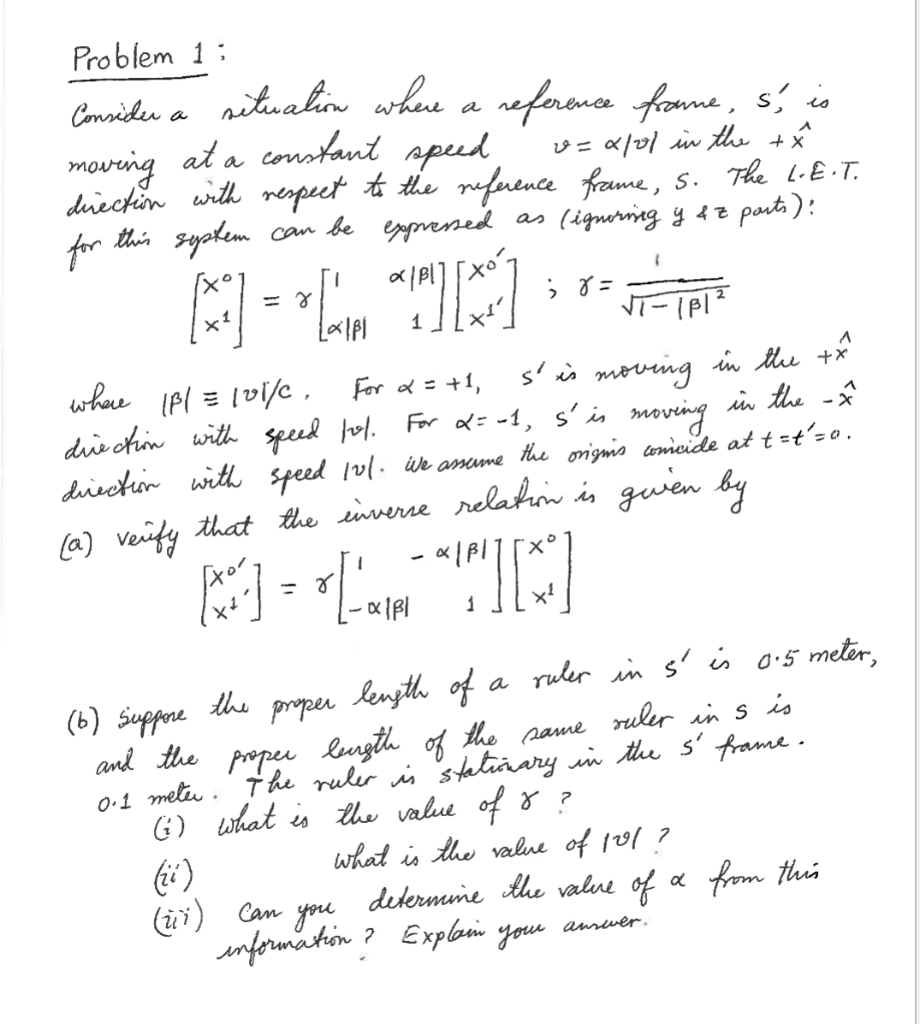 Problem 1 :
Consider a situation where a reference frame, s', is
moving at a constant speed v = α|v| in the +x̂
direction with respect to the reference frame, s. The L.E.T.
for this system can be expressed as (ignoring y & z parts):
[x⁰ x¹] = γ [1 α|β| α|β| 1] [x⁰' x¹'] ; γ = 1/√(1-|β|²)
where |β| ≡ |v|/c. For α = +1, s' is moving in the +x̂
direction with speed |v|. For α = -1, s' is moving in the -x̂
direction with speed |v|. We assume the origins coincide at t = t' = 0.
(a) verify that the inverse relation is given by
[x⁰' x¹'] = γ [1 -α|β| -α|β| 1] [x⁰ x¹]
(b) suppose the proper length of a ruler in s' is 0.5 meter,
and the proper length of the same ruler in s is
0.1 meter. The ruler is stationary in the s' frame.
(i) what is the value of γ ?
(ii) what is the value of |v| ?
(iii) Can you determine the value of α from this
information ? Explain your answer.